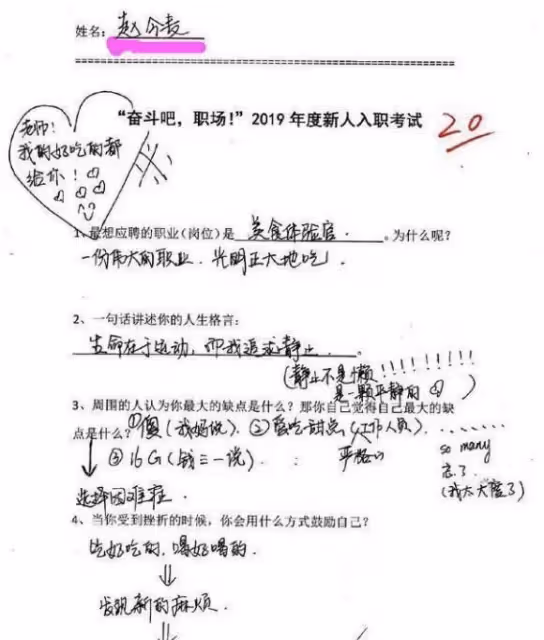 姓名：赵今麦
“奋斗吧，职场！”2019 年度新人入职考试
20
老师！
我的好吃的都
给你！
1、最想应聘的职业（岗位）是 美食体验官. 。为什么呢？
一份伟大的职业. 光明正大地吃！
2、一句话讲述你的人生格言：
生命在于运动，而我追求静止. 。
（静止不是懒！！！！！！！！！
是一颗平静的心）
3、周围的人认为你最大的缺点是什么？那你自己觉得自己最大的缺
点是什么？①傻（我好说）. ②爱吃甜点（工作人员）.......
严格的
so many
（我太大度了）
③16G（钱三一说）
选择困难症.
4、当你受到挫折的时候，你会用什么方式鼓励自己？
吃好吃的. 喝好喝的.
发现新的麻烦.